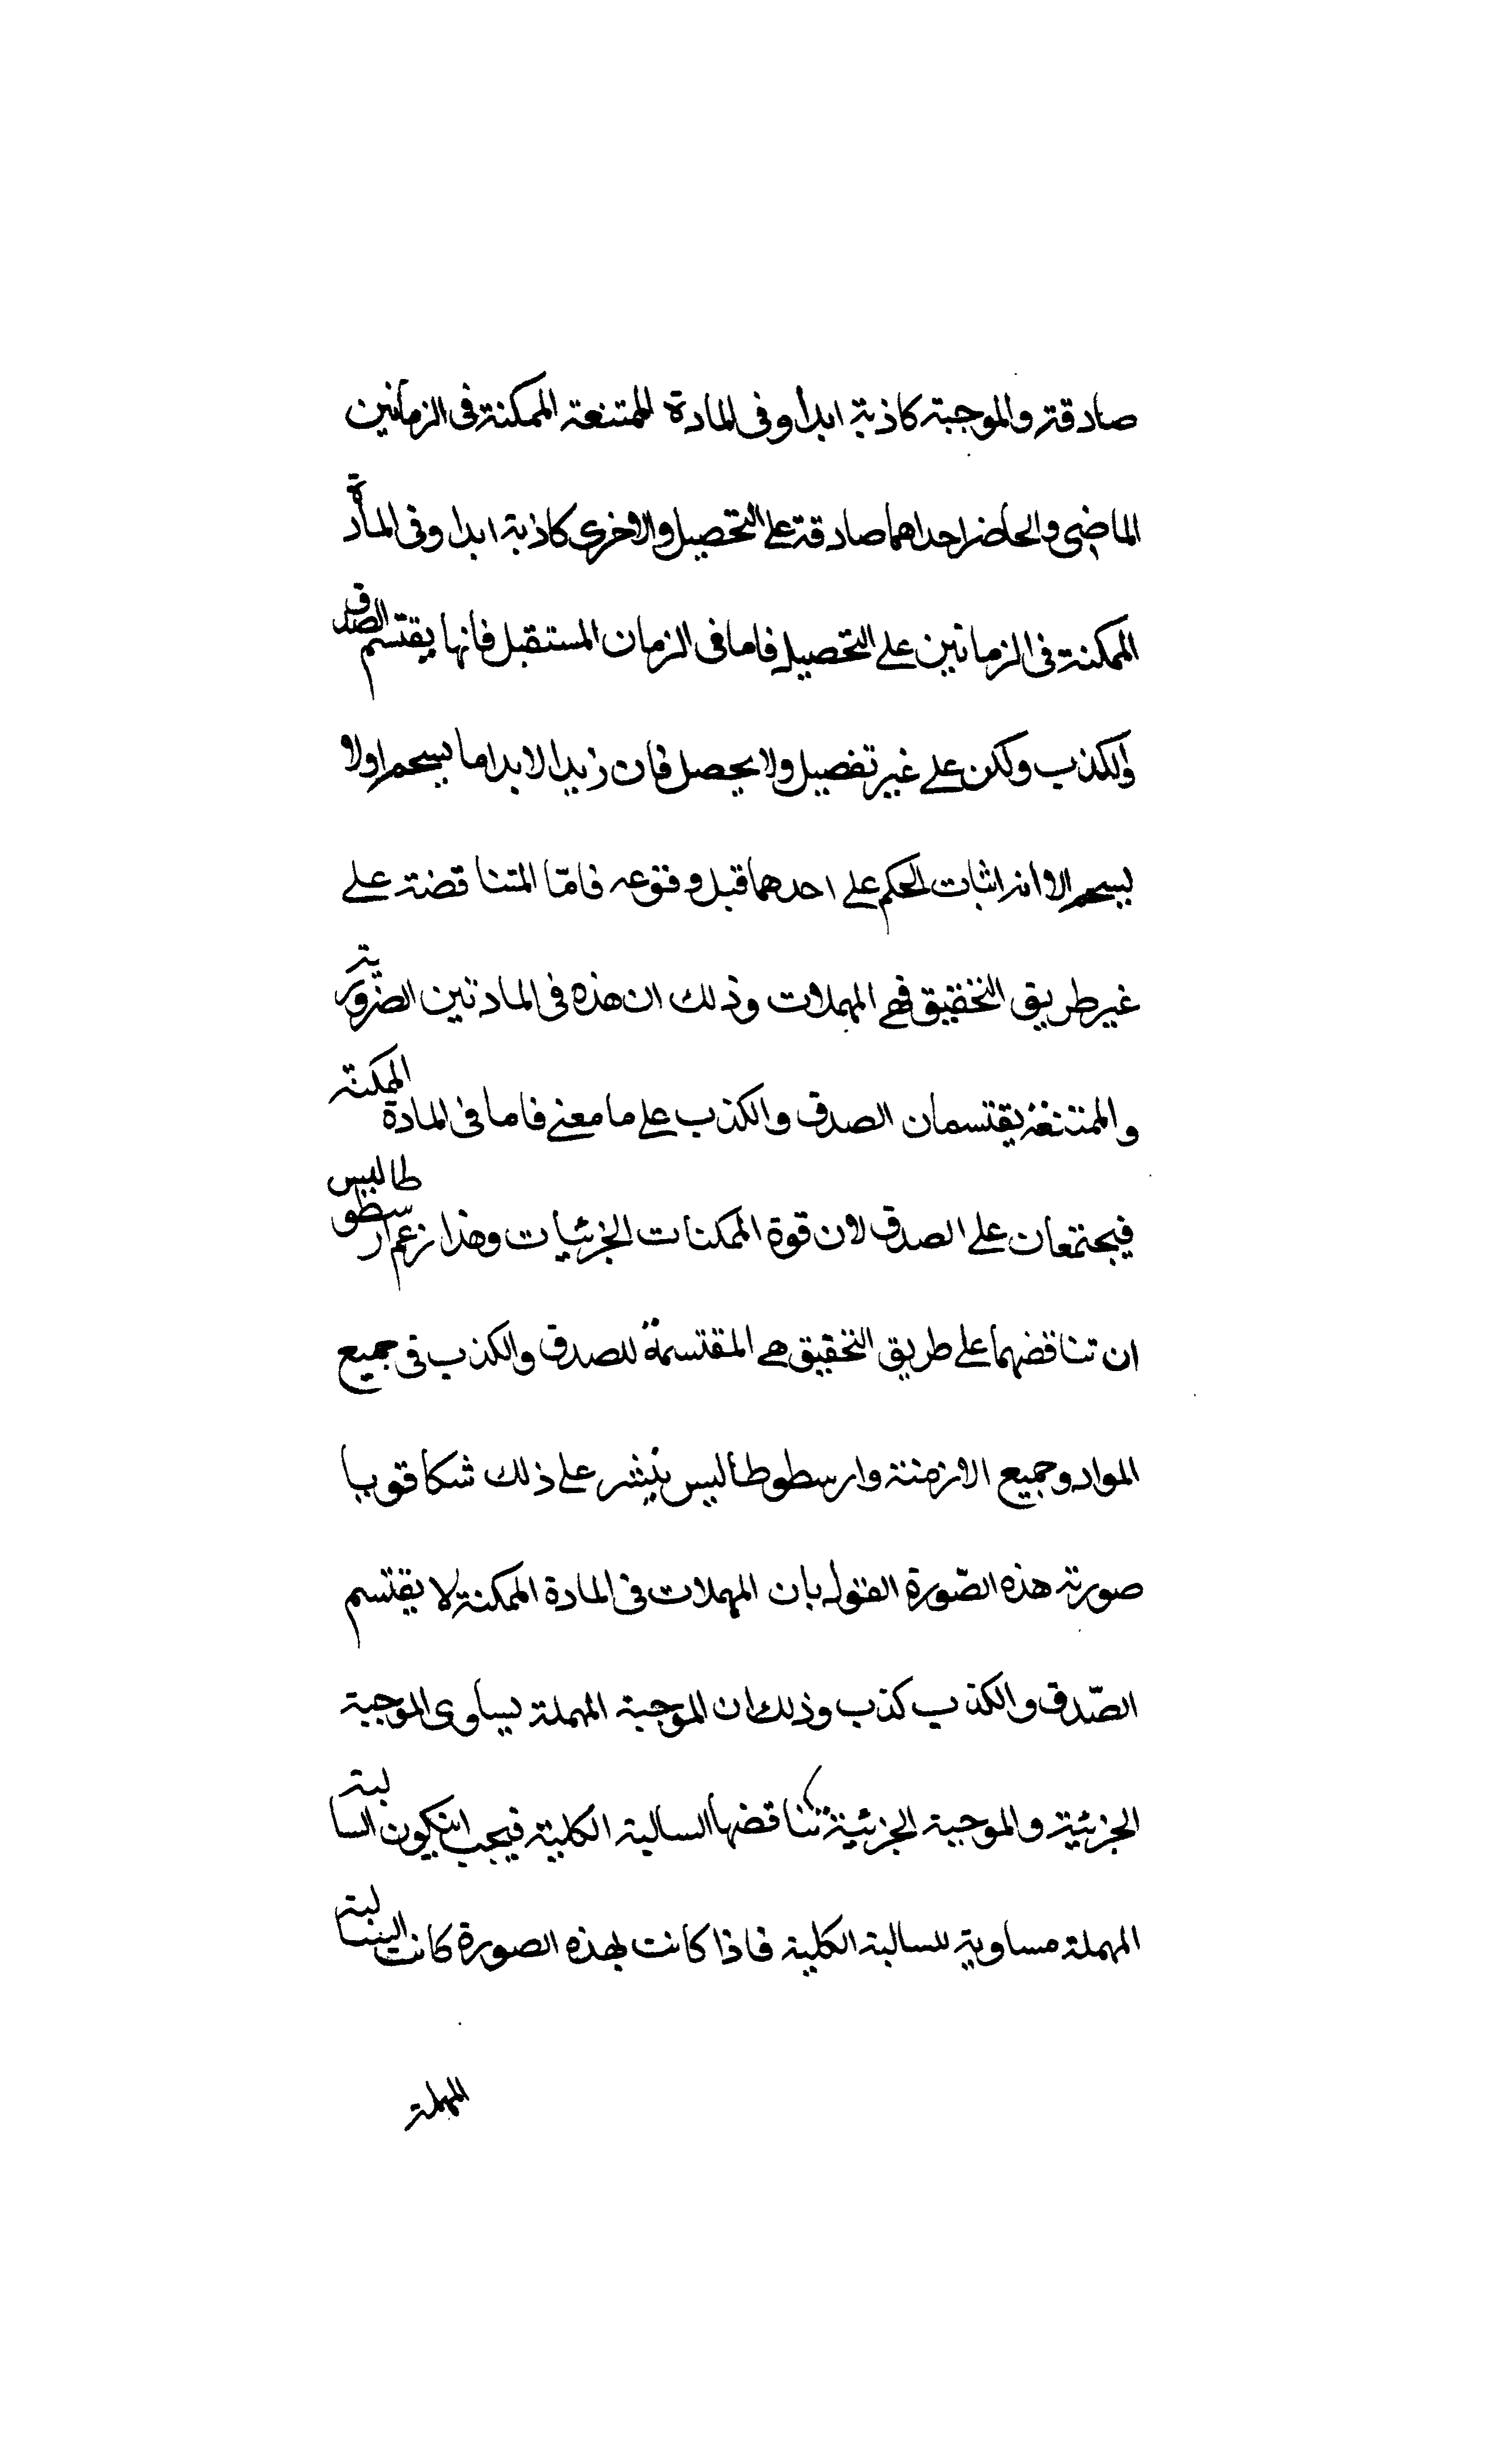 صادقة والموجبة كاذبة ابدا وفى المادة الممتنعة الممكنة فى الزمانين
الماضى والحاضر احداهما صادقة على التحصيل والاخرى كاذبة ابدا وفى المادة
الممكنة فى الزمانين على التحصيل فاما فى الزمان المستقبل فانها يقتسم الصدق
والكذب ولكن على غير تفصيل ولا يحصل فان زيدا لابد اما يسحم اولا
يسحم الا انه اثبات الحكم على احدهما قبل وقوعه فامّا المتناقضة على
غير طريق التحقيق فهى المهملات وذلك ان هذه فى المادتين الضرورية
والممتنعة يقتسمان الصدق والكذب على ما معنى فاما فى المادة الممكنة
فيجتمعان على الصدق لان قوة الممكنات الجزئيات وهذا زعم ارسطوطاليس
ان تناقضهما على طريق التحقيق هى المقتسمة للصدق والكذب فى جميع
المواد وجميع الازمنة وارسطوطاليس ينشر على ذلك شكا قويا
صورته هذه الصّورة القول بان المهملات فى المادة الممكنة لا يقتسم
الصّدق والكذب كذب وذلك ان الموجبة المهملة يساوى الموجبة
الجزئية والموجبة الجزئية تناقضها السالبة الكلية فيجب انيكون السالبة
المهملة مساوية للسالبة الكلية فاذا كانت بهذه الصورة كانت السالبة
المهملة